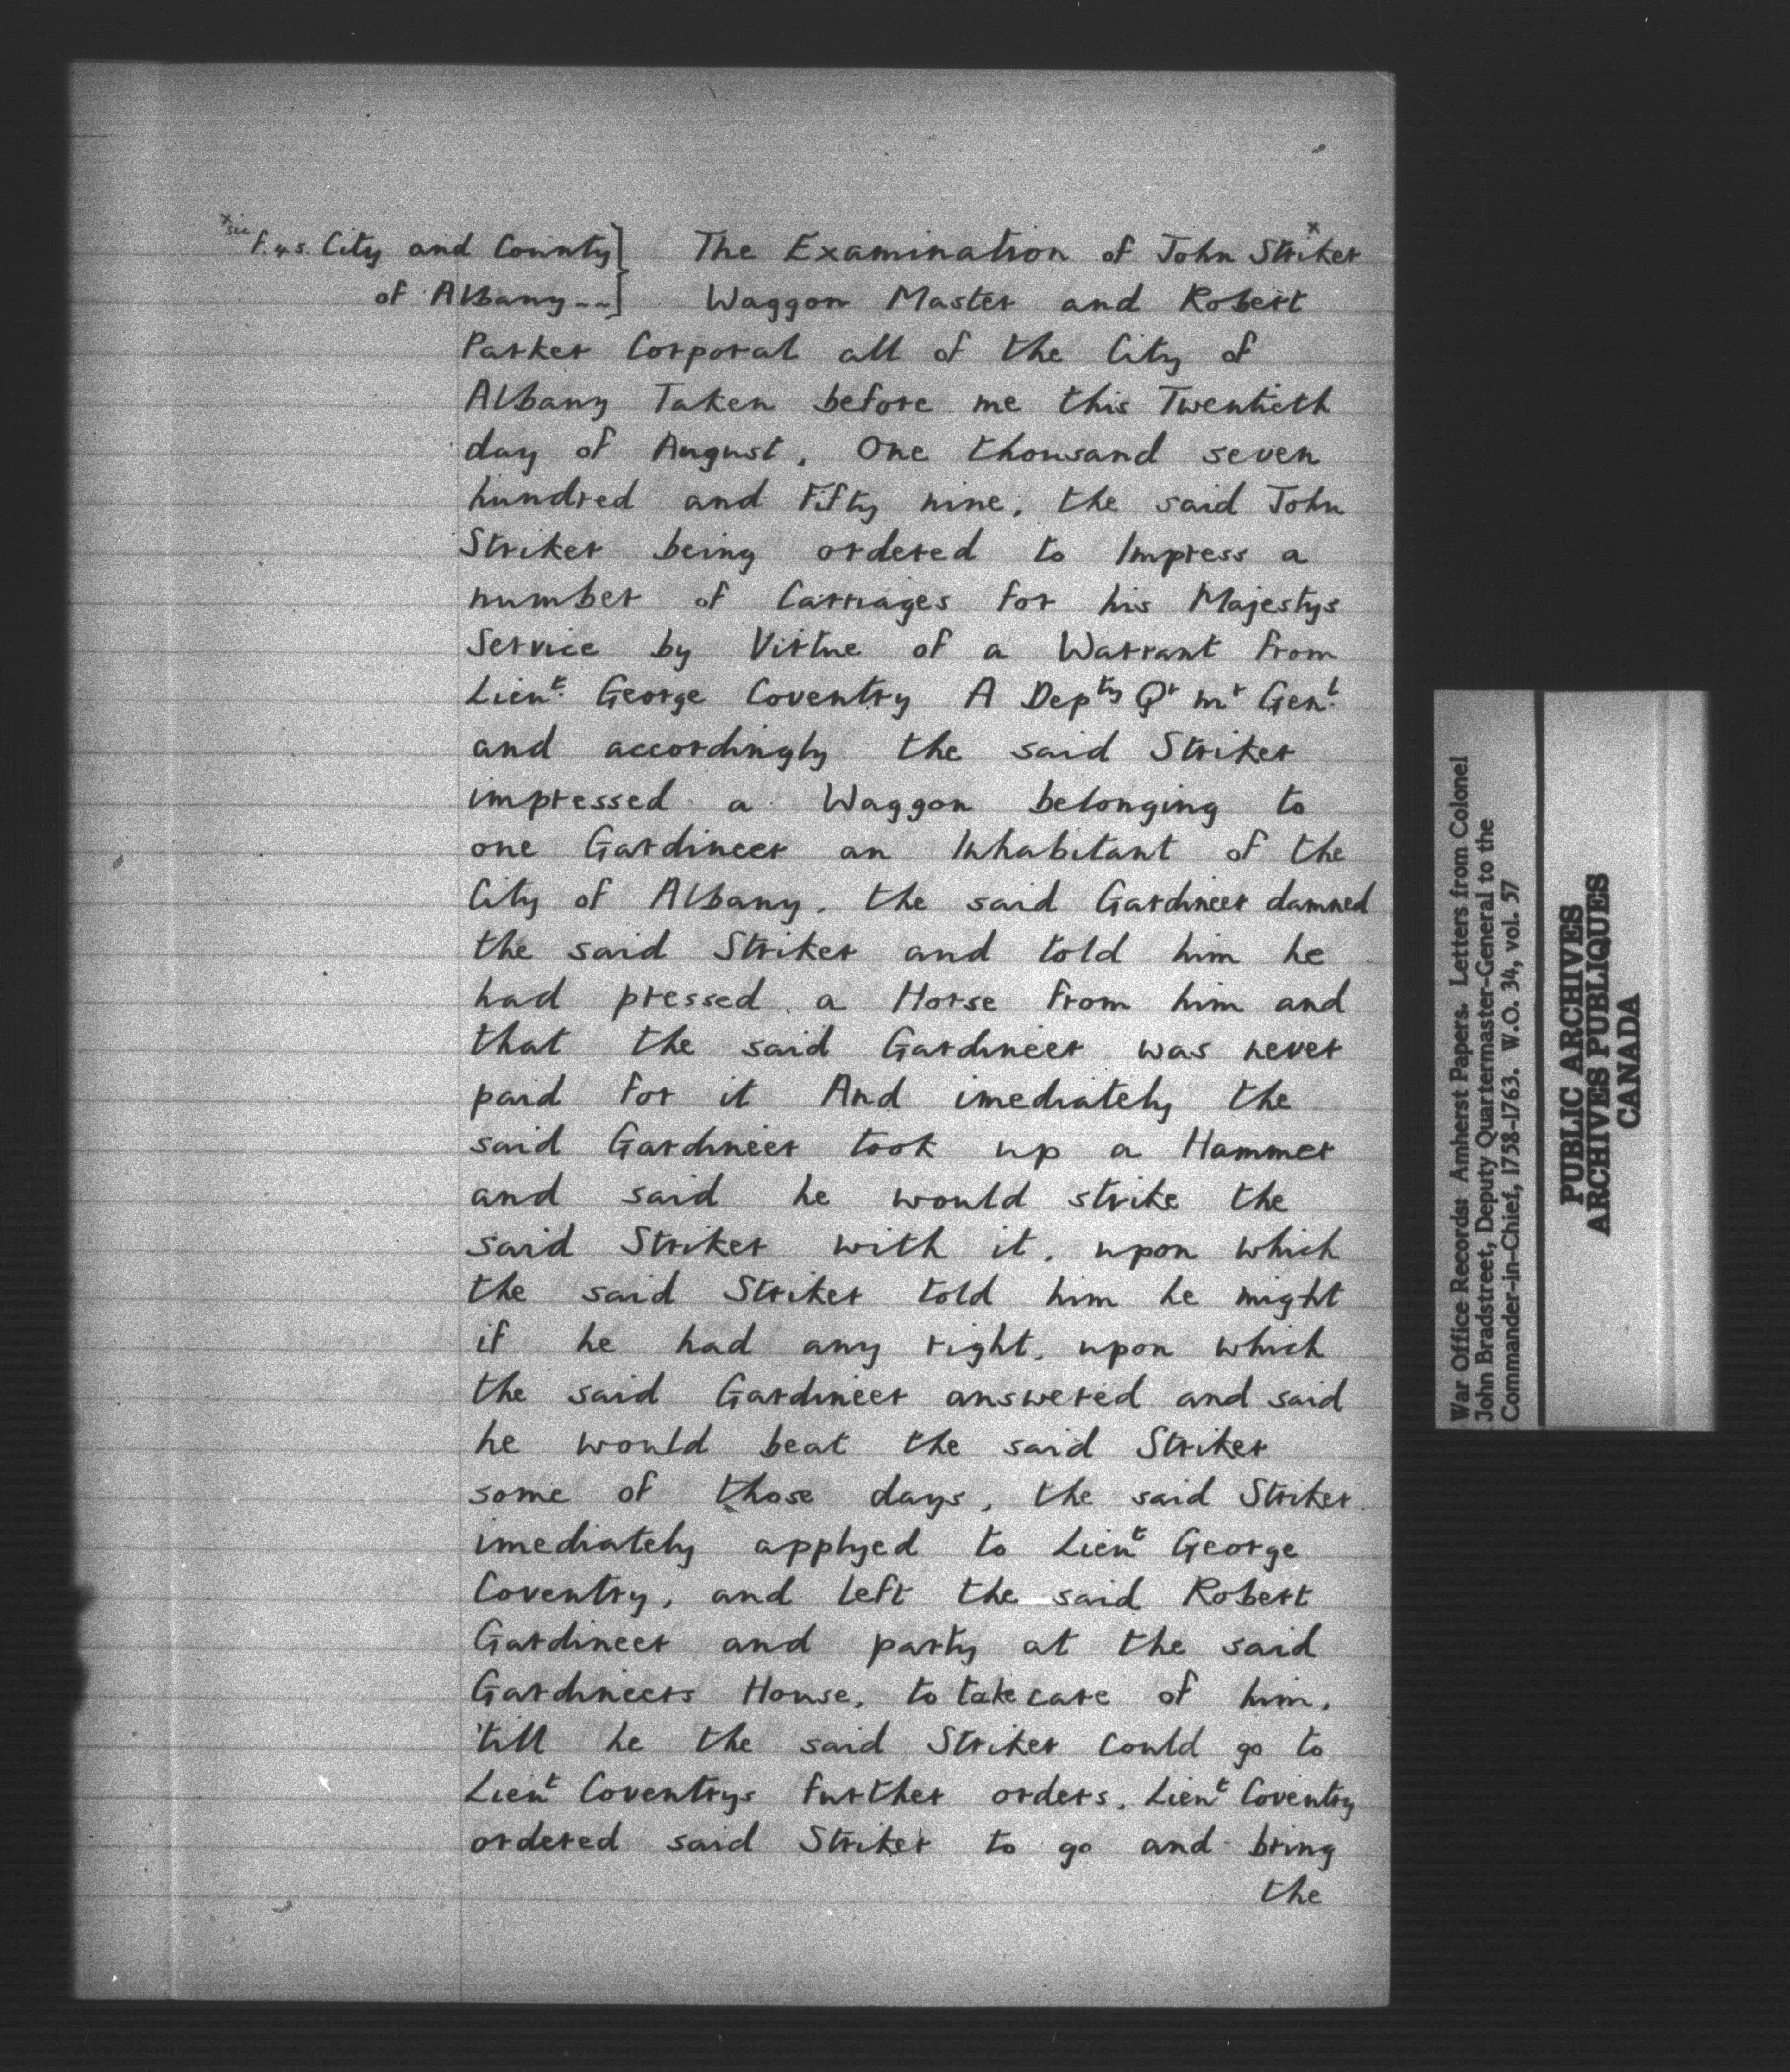 x sic f.4s. City and County} The Examination of John Striker x
of Albany --} Waggon Master and Robert
Parker Corporal all of the City of
Albany Taken before me this Twentieth
day of August, One thousand seven
hundred and Fifty nine, the said John
Striker being ordered to Impress a
number of Carriages for his Majestys
Service by Virtue of a Warrant from
Lieut. George Coventry A Depty Qr mr Genl.
and accordingly the said Striker
impressed a Waggon belonging to
one Gardineer an Inhabitant of the
City of Albany, the said Gardineer damned
the said Striker and told him he
had pressed a Horse from him and
that the said Gardineer was never
paid for it And imediately the
said Gardineer took up a Hammer
and said he would strike the
said Striker with it, upon which
the said Striker told him he might
if he had any right, upon which
the said Gardineer answered and said
he would beat the said Striker
some of those days, the said Striker
imediately applyed to Lieut George
Coventry, and left the said Robert
Gardineer and party at the said
Gardineers House, to take care of him,
'till he the said Striker could go to
Lieut Coventrys further orders, Lieut Coventry
ordered said Striker to go and bring
the
War Office Records: Amherst Papers. Letters from Colonel
John Bradstreet, Deputy Quartermaster-General to the
Commander-in-Chief, 1758-1763. W.O. 34, vol. 57
PUBLIC ARCHIVES
ARCHIVES PUBLIQUES
CANADA